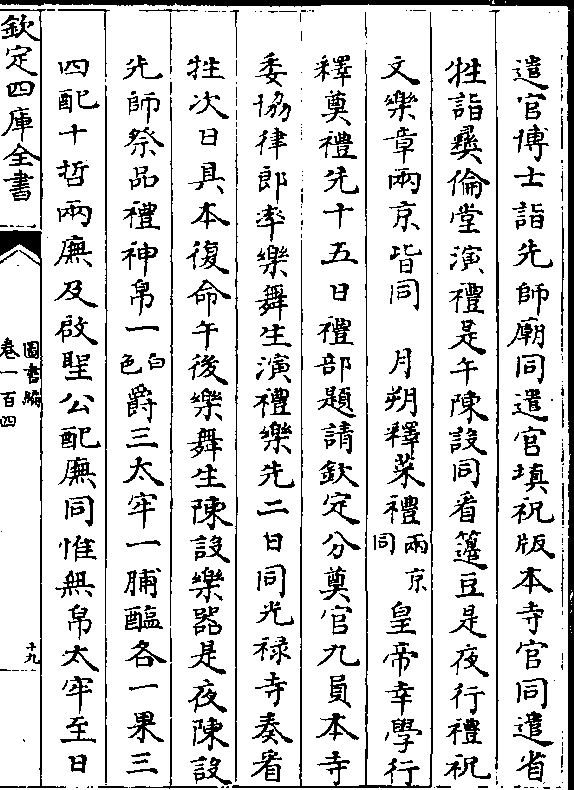 遣官博士詣先師廟同遣官填祝版本寺官同遣省
牲詣彛倫堂演禮是午陳設同看籩豆是夜行禮祝
文樂章兩京皆同　月朔釋菜禮兩京同　皇帝幸學行
釋奠禮先十五日禮部題請欽定分奠官九員本寺
委協律郎率樂舞生演禮樂先二日同光禄寺奏看
牲次日具本復命午後樂舞生陳設樂器是夜陳設
先師祭品禮神帛一白色爵三太牢一脯醢各一果三
四配十哲兩廡及啟聖公配廡同惟無帛太牢至日
欽定四庫全書
圖書編
卷一百四
十九